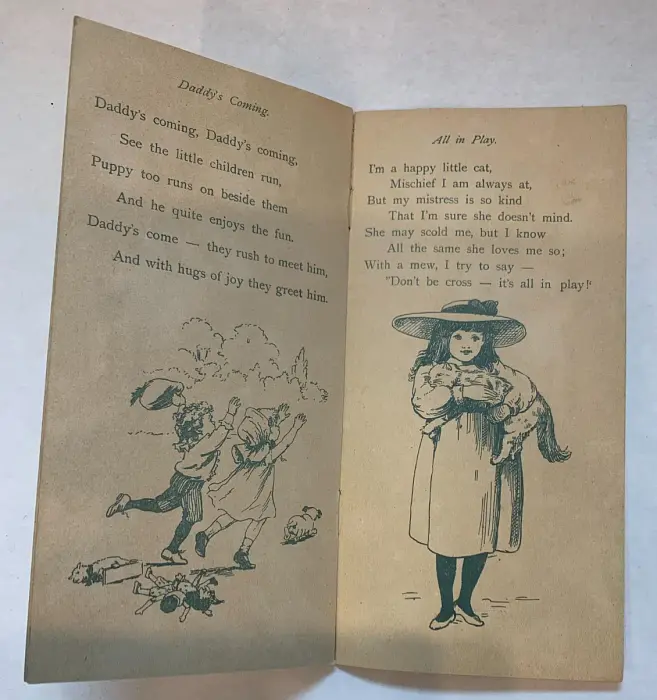 Daddy's Coming.
Daddy's coming, Daddy's coming,
See the little children run,
Puppy too runs on beside them
And he quite enjoys the fun.
Daddy's come — they rush to meet him,
And with hugs of joy they greet him.
All in Play.
I'm a happy little cat,
Mischief I am always at,
But my mistress is so kind
That I'm sure she doesn't mind.
She may scold me, but I know
All the same she loves me so;
With a mew, I try to say —
"Don't be cross — it's all in play!"